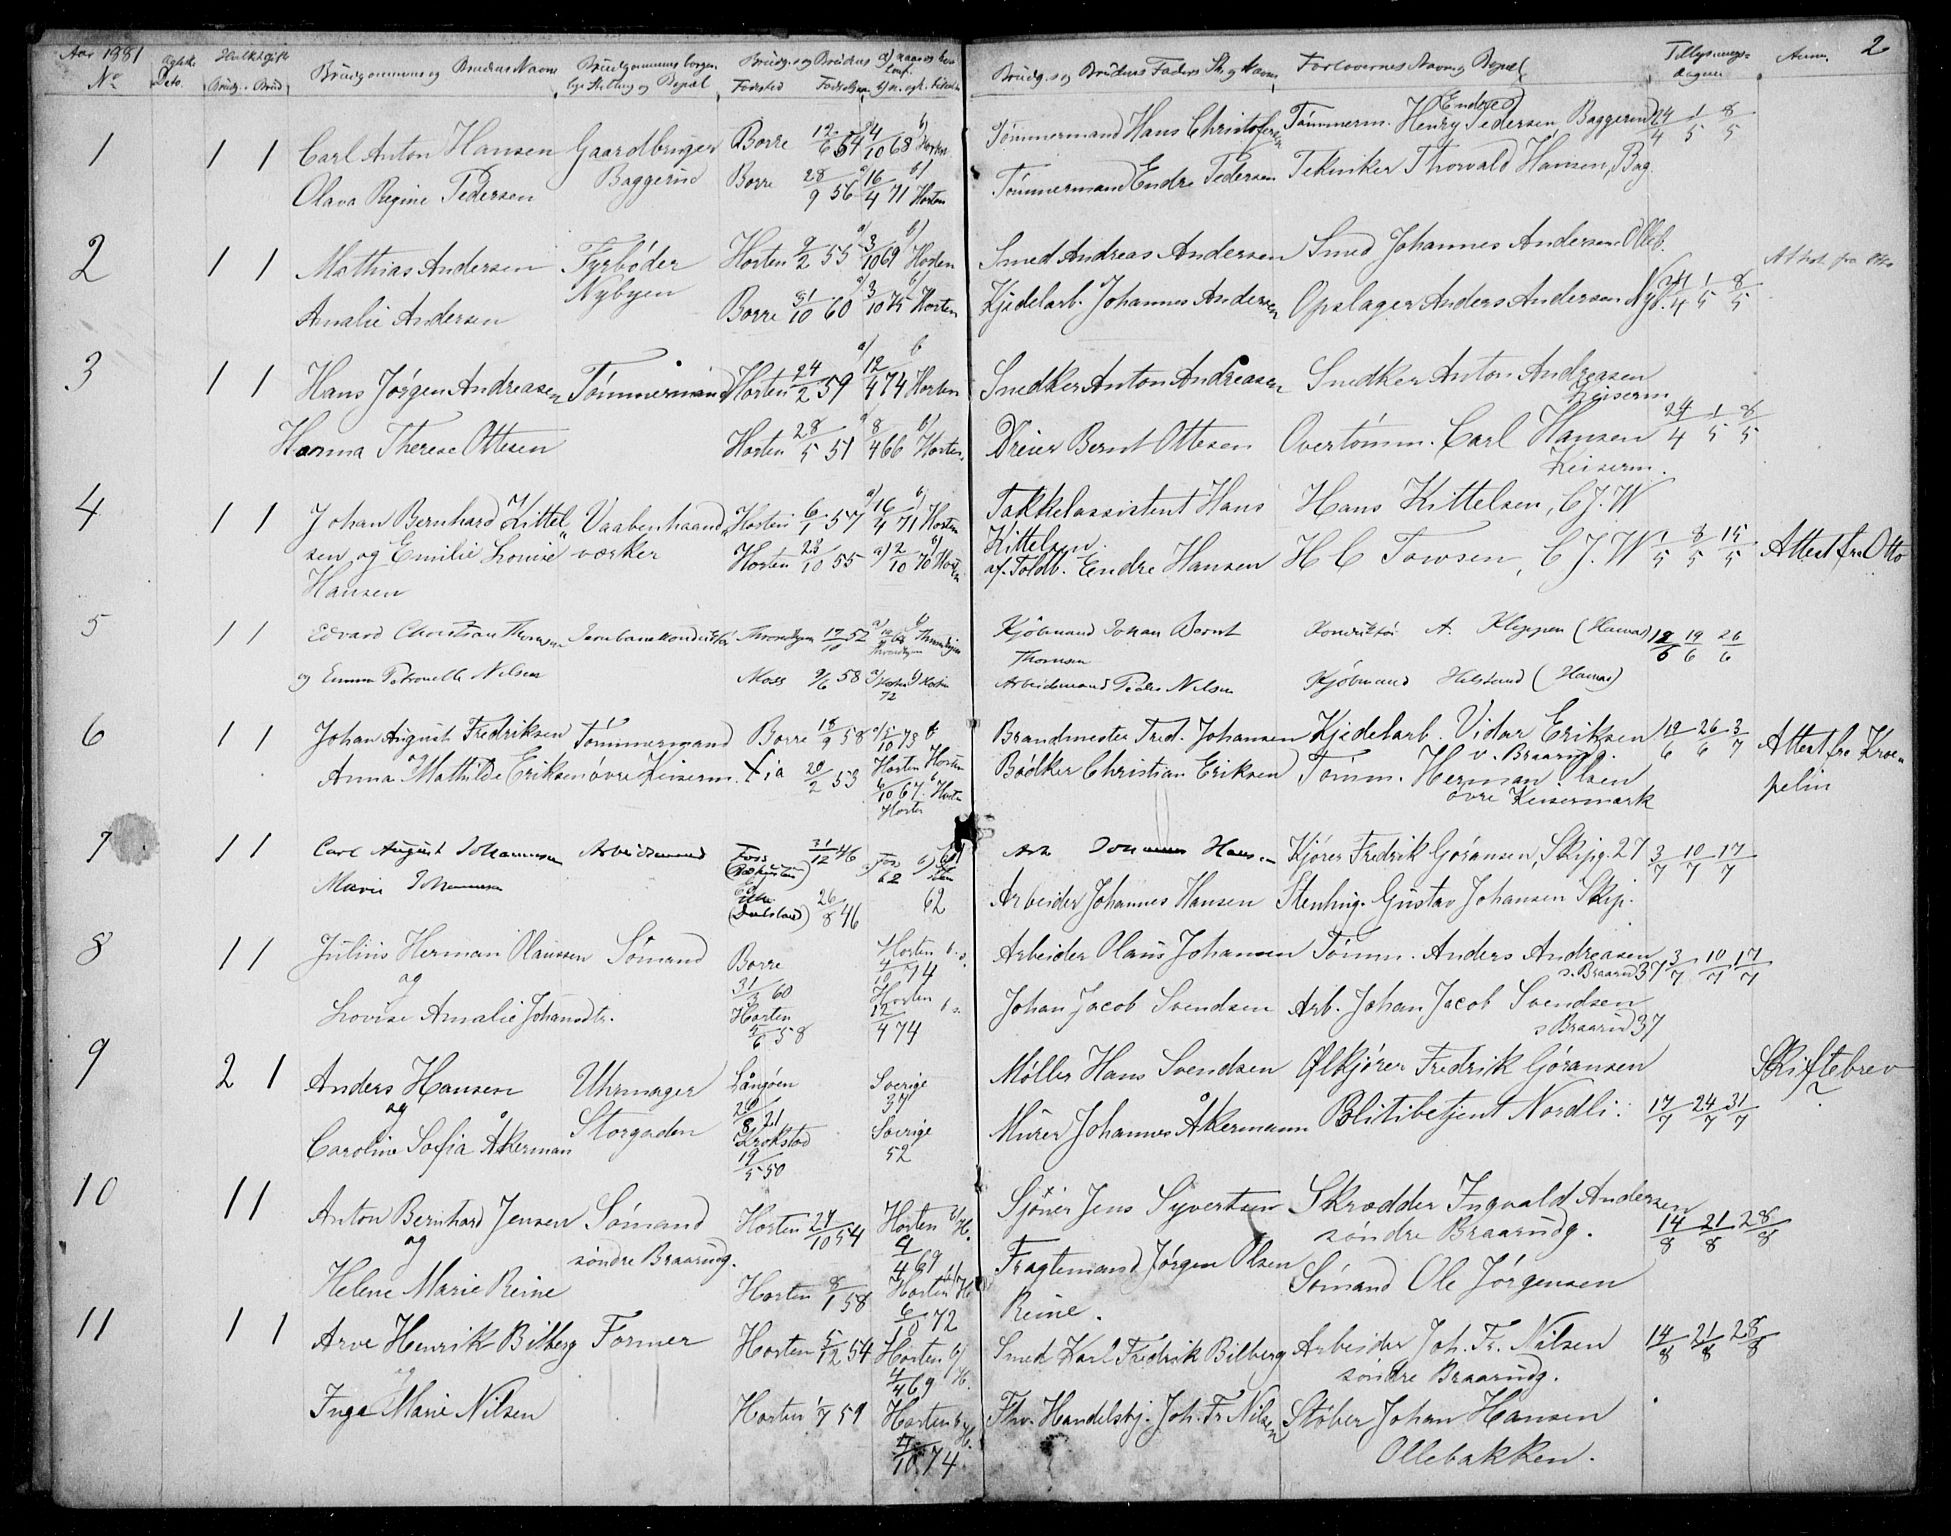 Aar 1881
No
Brudg. Brud
Brudgommens og Brudens Navn
Brudgommens borger-
lige Stilling og Bopæl
Brudg. og Brudens
Fødested Fødselsaar
Brudg. og Brudens Faders St. og Navn
Forlovernes Navn og Bopæl
Tillysnings-
dagene
Anm.
2
1
1 1
Carl Anton Hansen
Olava Regine Pedersen
Gaardbruger
Baggerud
Borre 12/6 54 a) 4/10 68 b) Horten
Borre 28/9 56 a) 16/4 71 b) Horten
Tømmermand Hans Christofersen
Tømmermand Endre Pedersen
Tømmerm. Henry (Endre) Pedersen Baggerud
Tekniker Thorvald Hansen, Bag.
24/4 1/5 8/5
2
1 1
Mathias Andersen
Amalie Andersen
Fyrbøder
Nybyen
Horten 9/2 55 a) 3/10 69 b) Horten
Borre 31/10 60 a) 3/10 75 b) Horten
Smed Andreas Andersen
Kjedelarb. Johannes Andersen
Smed Johannes Andersen Olleb.
Opslager Anders Andersen Nyb.
24/4 1/5 8/5
3
1 1
Hans Jørgen Andreasen
Hanna Therese Ottesen
Tømmermand
Horten 24/2 59 a) 12/4 74 b Horten
Horten 28/5 51 a) 8/4 66 b) Horten
Snedker Anton Andreasen
Dreier Bernt Ottesen
Snedker Anton Andreasen
Keiserm
Overtømm. Carl Hansen
Keiserm.
24/4 1/5 8/5
4
1 1
Johan Bernhard Kittel„
sen og Emilie Louise
Hansen
Vaabenhaand„
værker
Horten 6/1 57 a) 16/4 71 b) Horten
Horten 23/10 55 a) 2/10 70 b) Horten
Takkelassistent Hans
Kittelsen
af. Toldb. Endre Hansen
Hans Kittelsen, C.J.W
H C Towsen, C.J.W
1/5 8/5 15/5
Attest fra Otto
5
1 1
Edvard Christian Thomsen
og Emma Petronelle Nilsen
Jernbanekonduktør
Throndhjem 17/10 52
Moss 9/6 58 a) Horten b) Horten
72
Kjøbmand Johan Bernt
Thomsen
Arbeidsmand Peder Nilsen
Konduktør A. Kleppen (Hamar)
Kjøbmand Helstand (Hamar)
12/6 19/6 26/6
6
1 1
Johan August Fredriksen
Anna Mathilde Eriksen
Tømmermand
øvre Keiserm.
Borre 18/9 58
20/2 53
Horten Horten
6/10 67. b Horten
Horten
Brandmester Fred. Johansen
Bødker Christian Eriksen
Kjedelarb. Vidar Eriksen
v. Braarudg.
Tømm. Herman Olsen
øvre Keisermark
19/6 26/6 3/7
Attest fra Kroe„
pelin
7
1 1
Carl August Johannesen
Marie Johannesen
Arbeidsmand
Foss
31/12 46
(Dalsland) 26/8 46
62
62
Arb Johannes Hansen
Arbeider Johannes Hansen
Kjører Fredrik Gøransen, Skipg. 27
Stenhug. Gustav Johansen Skip.
3/7 10/7 17/7
8
1 1
Julius Herman Olaussen
og
Lovise Amalie Johansdtr.
Sømand
Borre
31/3 60
Horten
5/6 58
Horten
4/10 74
Horten
12/4 74
Arbeider Olaus Johansen
Johan Jacob Svendsen
Tømm. Anders Andreasen
s. Braarud 37
Arb. Johan Jacob Svendsen
s Braarud 37
3/7 10/7 17/7
9
2 1
Anders Hansen
og
Caroline Sofia Åkerman
Uhrmager
Storgaden
Långøen
20/8 21
Krokstad
19/5 50
Sverige
37
Sverige
52
Møller Hans Svendsen
Murer Johannes Åkermann
Ølkjører Fredrik Gøransen
Politibetjent Nordli.
17/7 24/7 31/7
Skiftebrev
?
10
1 1
Anton Bernhard Jensen
og
Helene Marie Reine
Sømand
søndre Braarudg.
Horten 27/10 54
Horten 8/1 58
Horten b/ H.
4/4 69
Horten b/ H.
6/10 72
Sjøner Jens Syvertsen
Fragtemand Jørgen Olsen
Reine.
Skrædder Ingvald Andersen
søndre Braarudg.
Sømand Ole Jørgensen
14/8 21/8 28/8
11
1 1
Arve Henrik Bilberg
og
Inga Marie Nilsen
Former
Horten 5/12 54
Horten 1/7 59
Horten b/
4/4 69 H.
Horten b/
4/10 74 H.
Smed Karl Fredrik Bilberg
Fhv. Handelsbj. Joh. Fr Nilsen
Arbeider Joh. Fr. Nilsen
søndre Braarudg.
Støber Johan Hansen
Ollebakken.
14/8 21/8 28/8